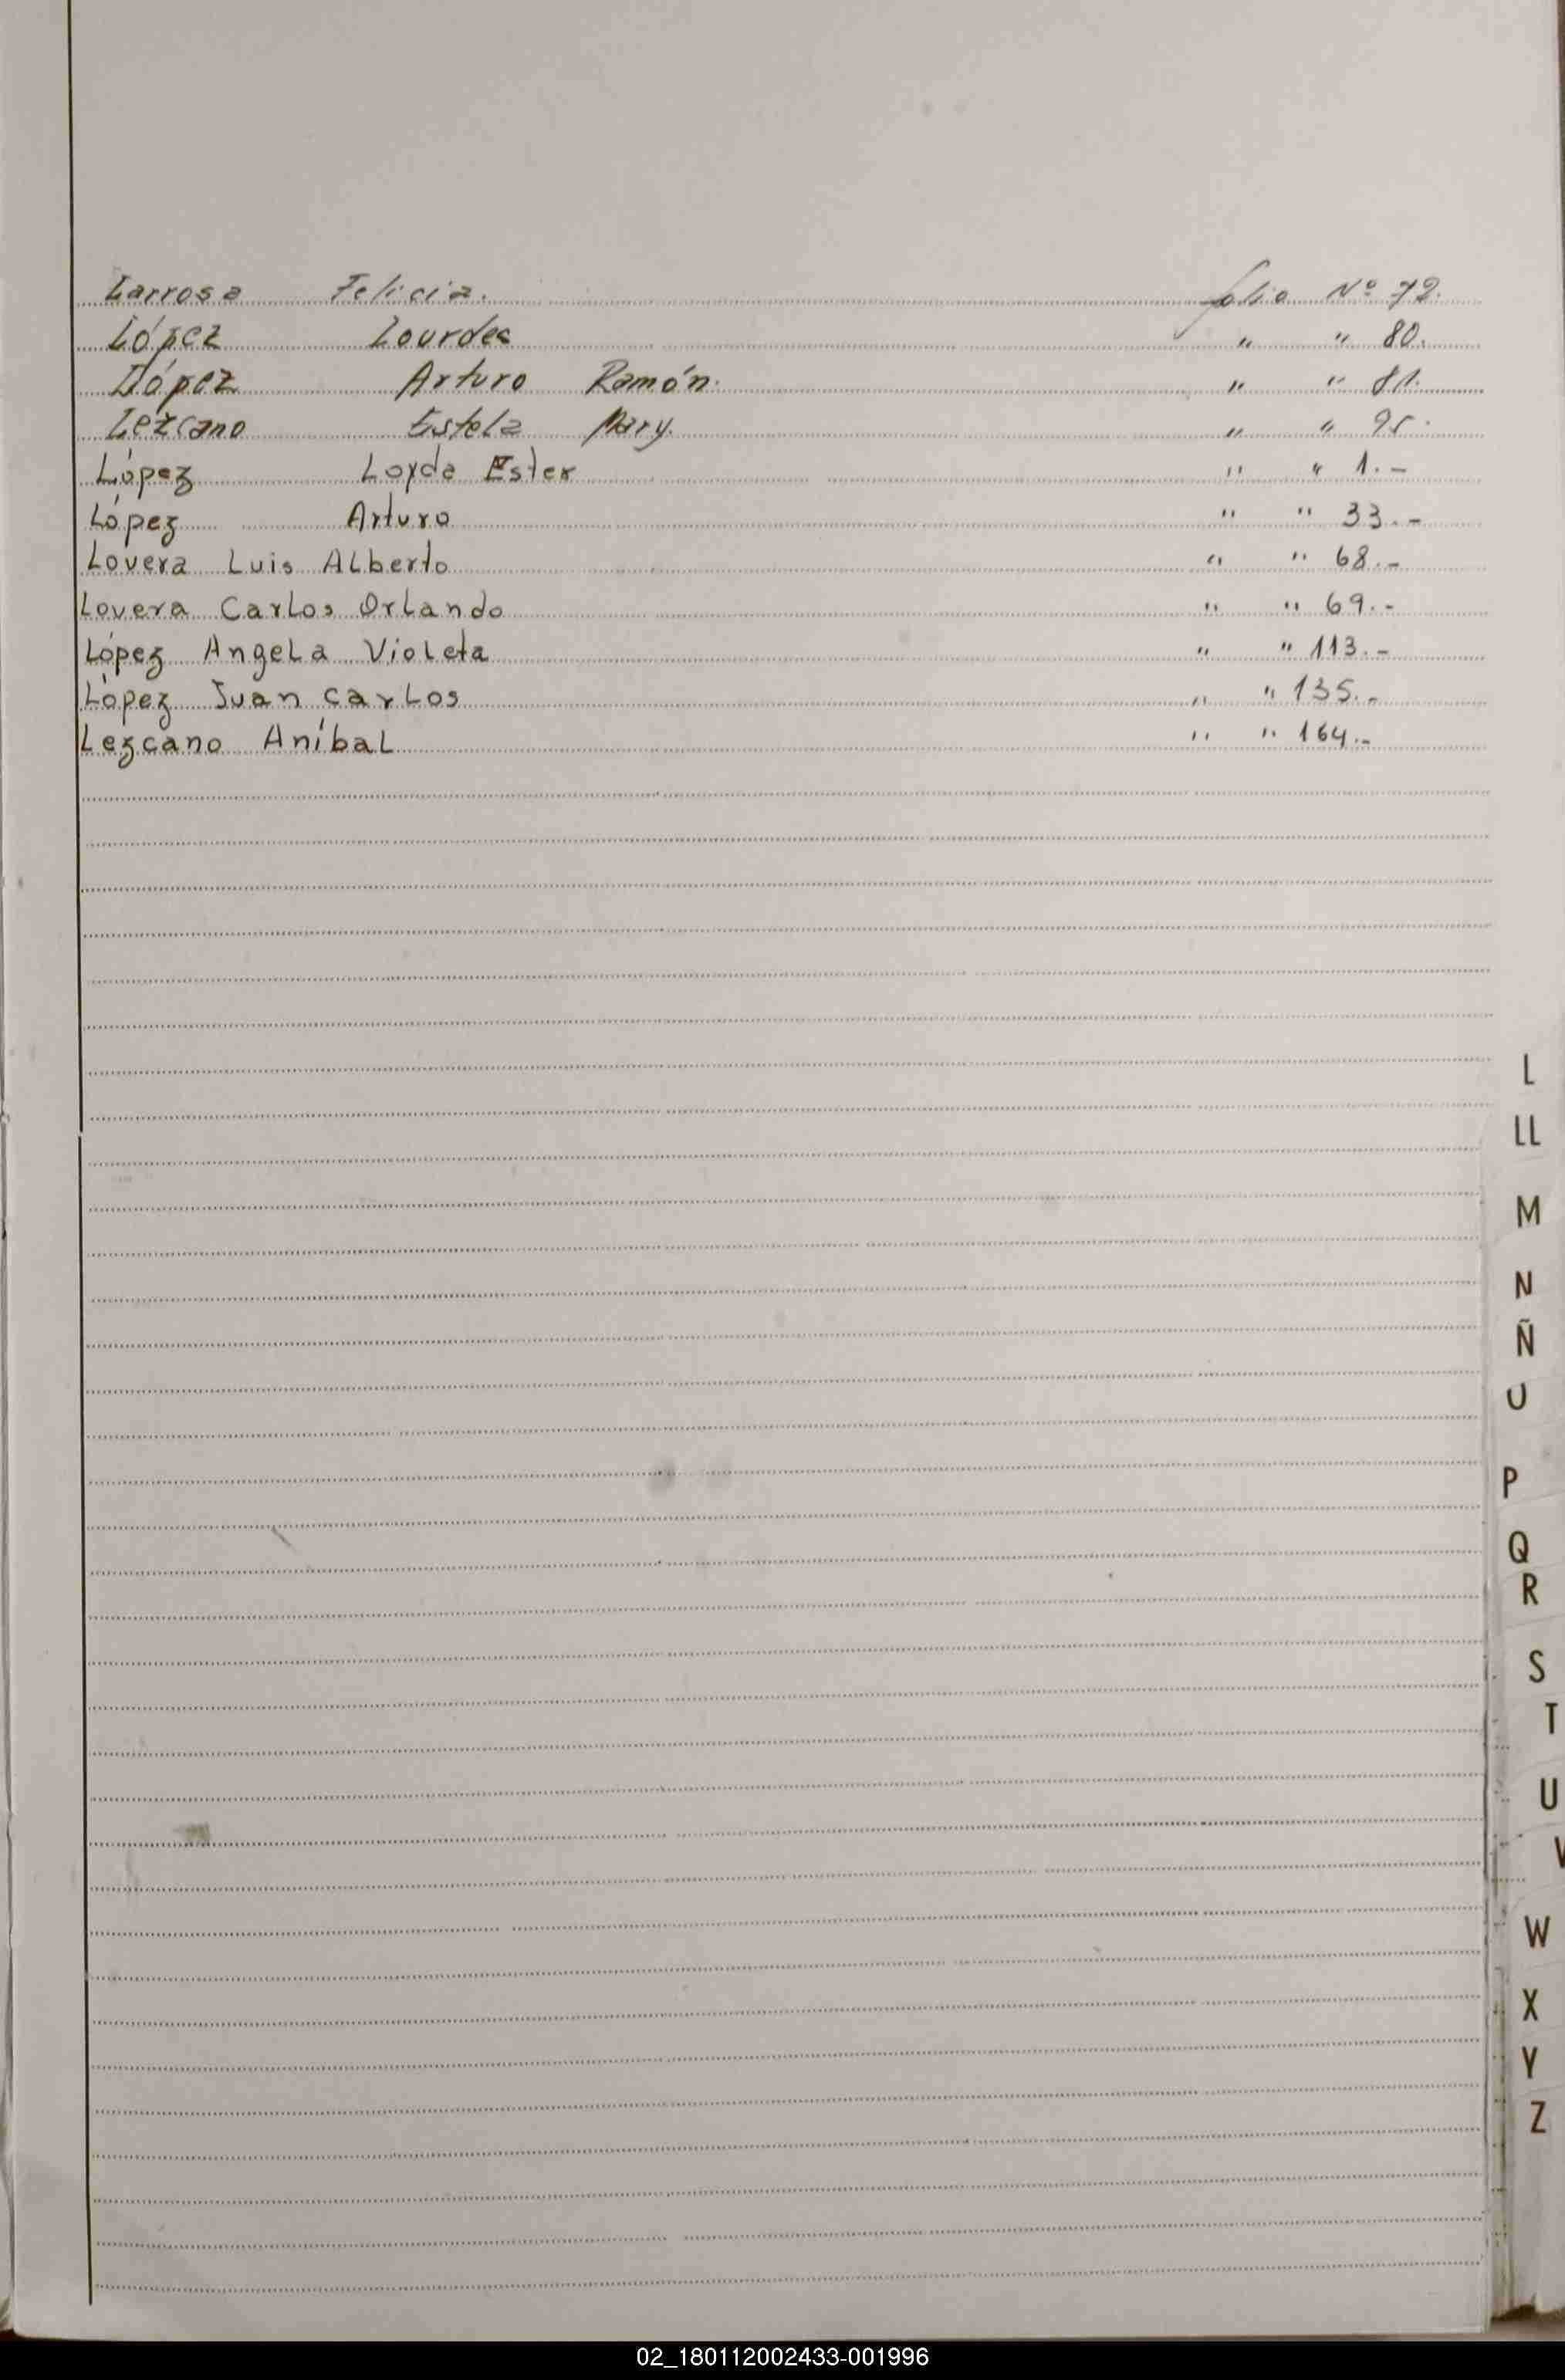 Larrosa Felicia. folio Nº 72.
López Lourdes " " 80.
López Arturo Ramón. " " 81.
Lezcano Estela Mary. " " 95.
López Loyda Ester " " 1.-
López Arturo " " 33.-
Lovera Luis Alberto " " 68.-
Lovera Carlos Orlando " " 69.-
López Angela Violeta " " 113.-
López Juan Carlos " " 135.-
Lezcano Aníbal " " 164.-
L
LL
M
N
Ñ
O
P
Q
R
S
T
U
V
W
X
Y
Z
02_180112002433-001996